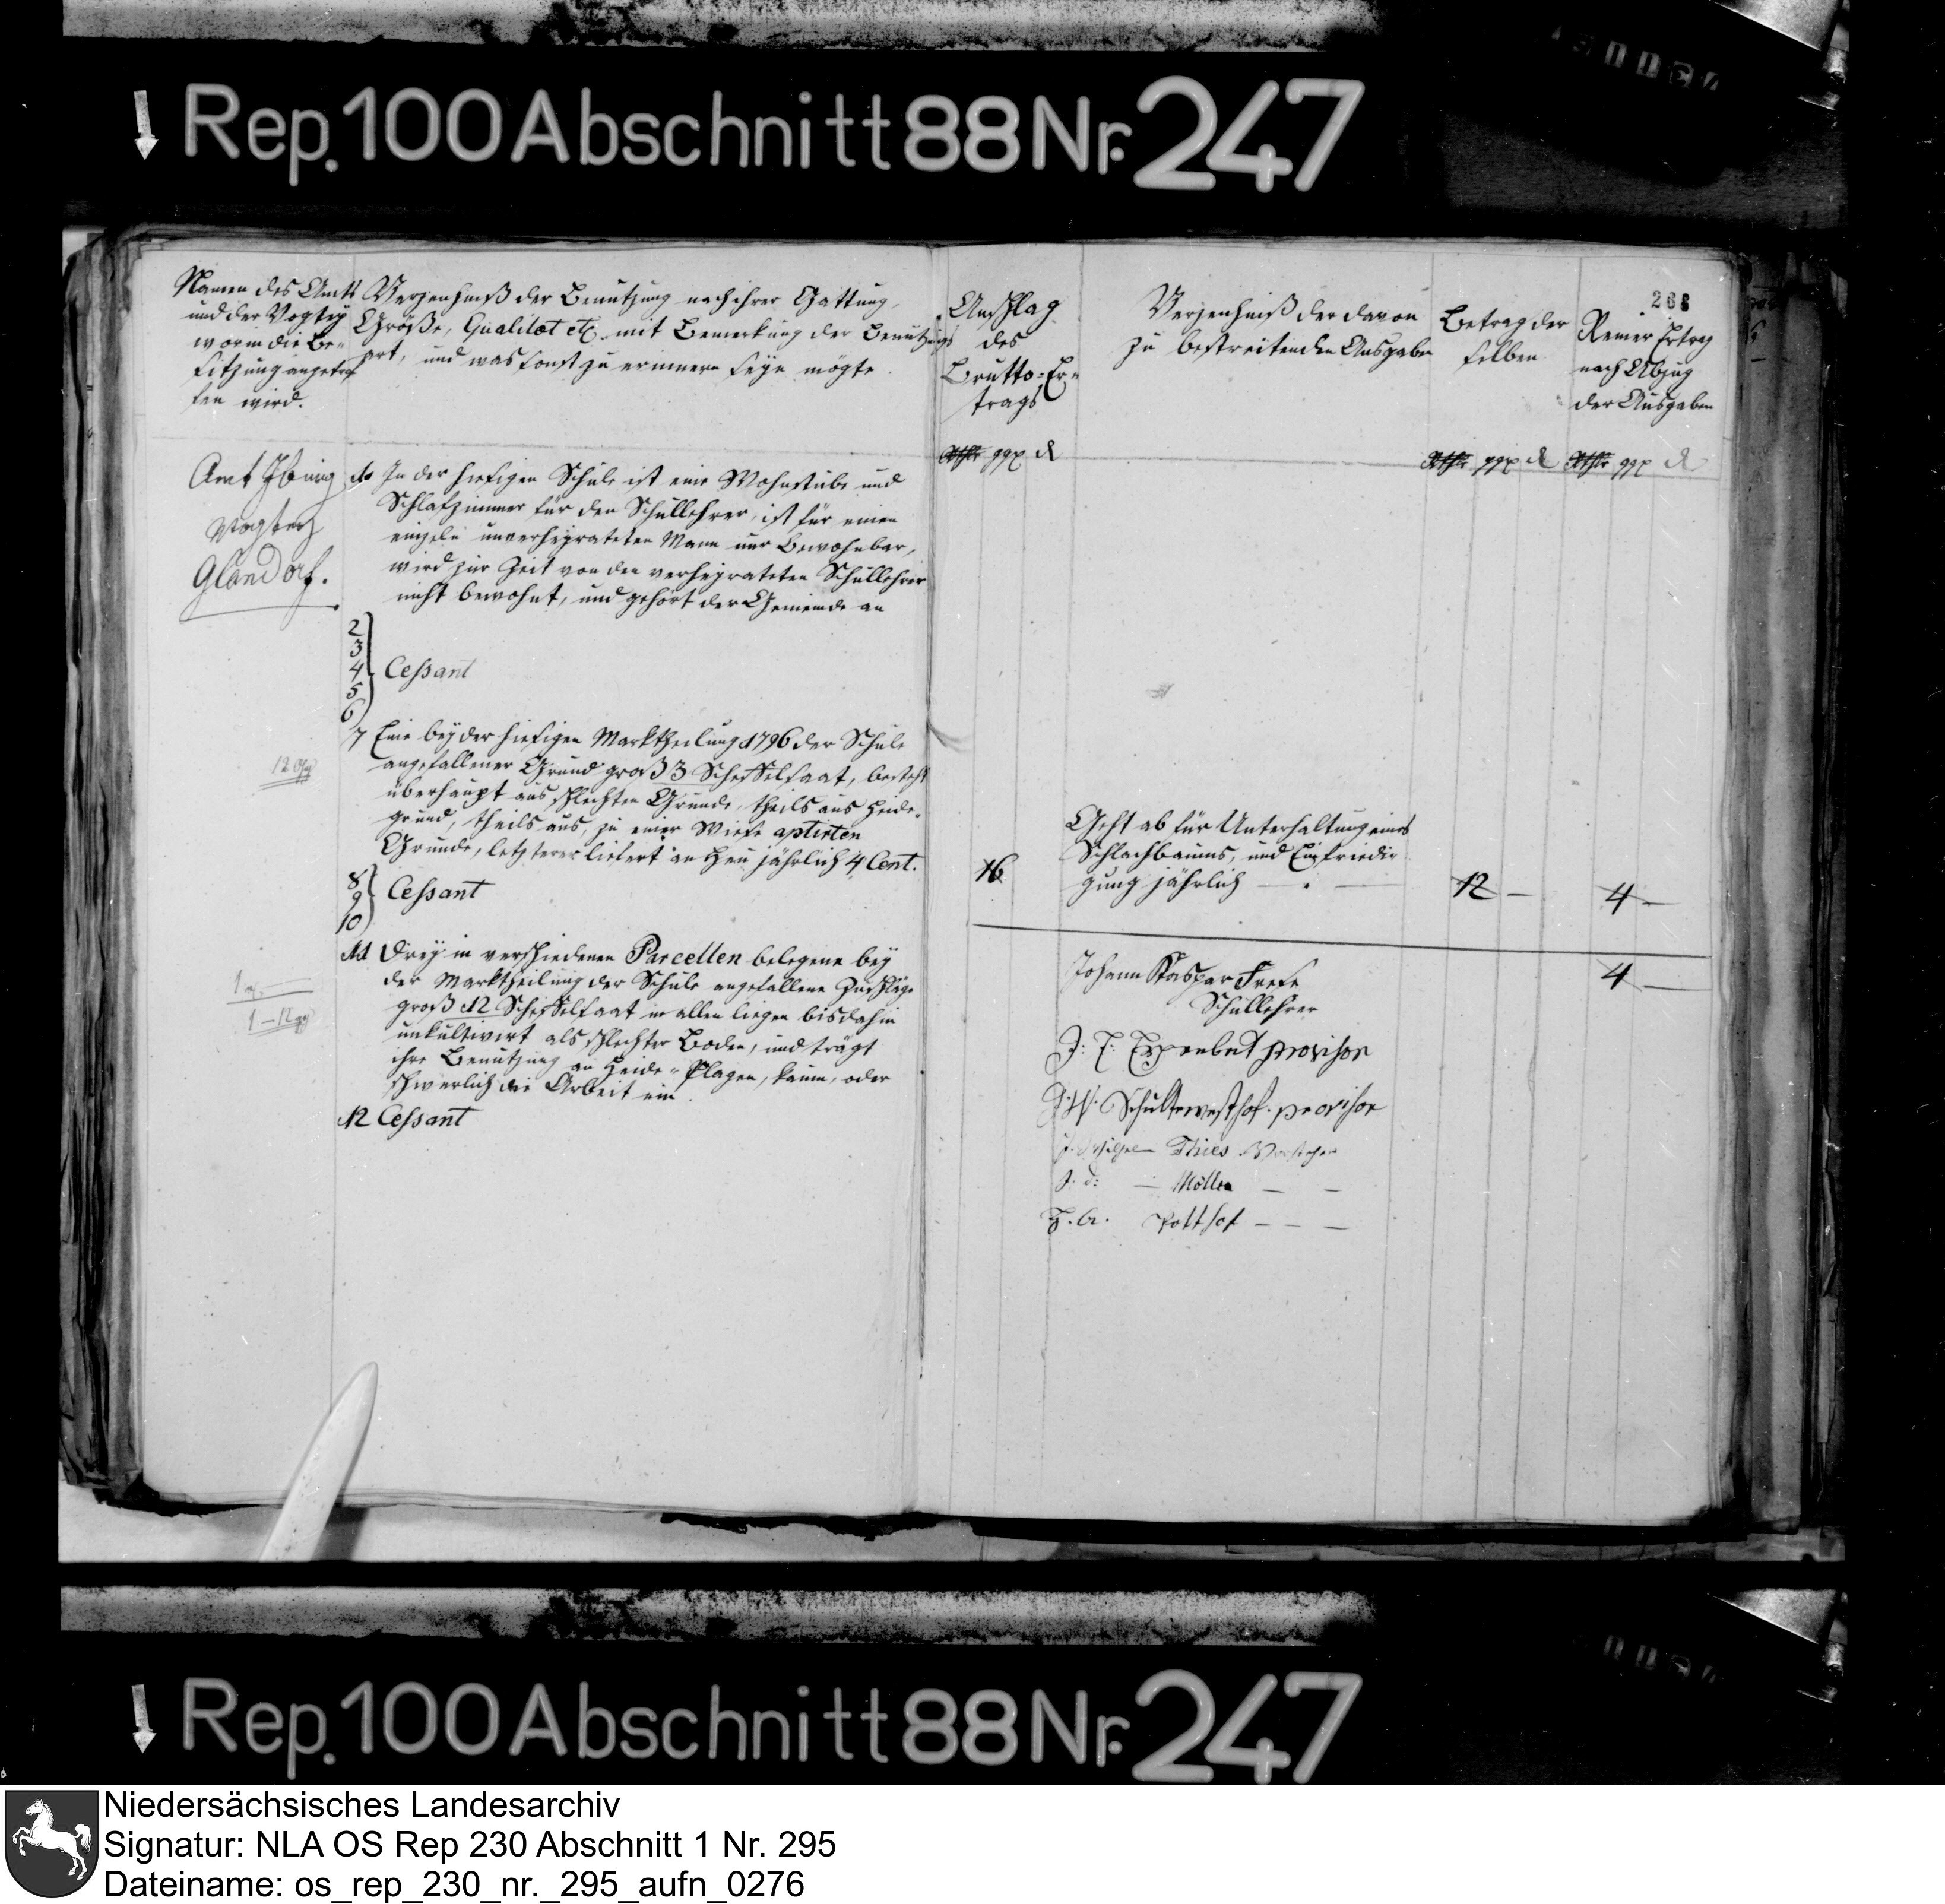 Rep. 100 Abschnitt 88 Nr. 247
Namen des Amts
und der Vogtey
worin die Be-
sitzung angetrof
fen wird.
Verzeichniß der Benutzung nach ihrer Gattung,
Größe, Qualitæt etc. mit Bemerkung der Benutzungs
art, und was sonst zu erinnern seyn mögte
Anschlag
des
Brutto-Er-
trags
Verzeichniß der davon
zu bestreitenden Ausgaben
Betrag der
selben
268
Reiner Ertrag
nach Abzug
der Ausgaben
Rthlr ggr d
Rthlr ggr d
Rthlr ggr d
Amt Iburg
Vogtey
Glandorf.
1. In der hiesigen Schule ist eine Wohnstube und
Schlafzimmer für den Schullehrer, ist für einen
einzeln unverheyrateten Mann nur bewohnbar,
wird zur Zeit von den verheyrateten Schullehrer
nicht bewohnt, und gehört der Gemeinde an
2
3
4 Cessant
5
6
7 Eine bey der hiesigen Marktheilung 1796 der Schule
angefallener Grund groß 3 Scheffelsaat, besteht
überhaupt aus schlechten Grunde, theils aus Heide-
grund, theils aus, zu einer Wiese aptirten
Grunde, letzterer liefert an Heu jährlich 4 Cent.
12 ggr
16
Geht ab für Unterhaltung eines
Schlachbaums, und Einfriedi-
gung jährlich — . —
12 —
4 —
8
9 Cessant
10
11 Drey in verschiedenen Parcellen belegene bey
der Marktheilung der Schule angefallene Zuschläge
groß 12 Scheffelsaat in allen liegen bisdahin
unkultivirt als schlechter Boden, und trägt
ihre Benutzung an Heide-Plagen, kaum, oder
schwerlich die Arbeit ein.
1 —
1 – 12 ggr
12 Cessant
4 —
Johann Kaspar Frese
Schullehrer
J: E: provisor
Schultewesthof. provisor
Thies Vorsteher
J. d: — Möller — —
Potthof — — —
Rep. 100 Abschnitt 88 Nr. 247
Niedersächsisches Landesarchiv
Signatur: NLA OS Rep 230 Abschnitt 1 Nr. 295
Dateiname: os_rep_230_nr._295_aufn_0276